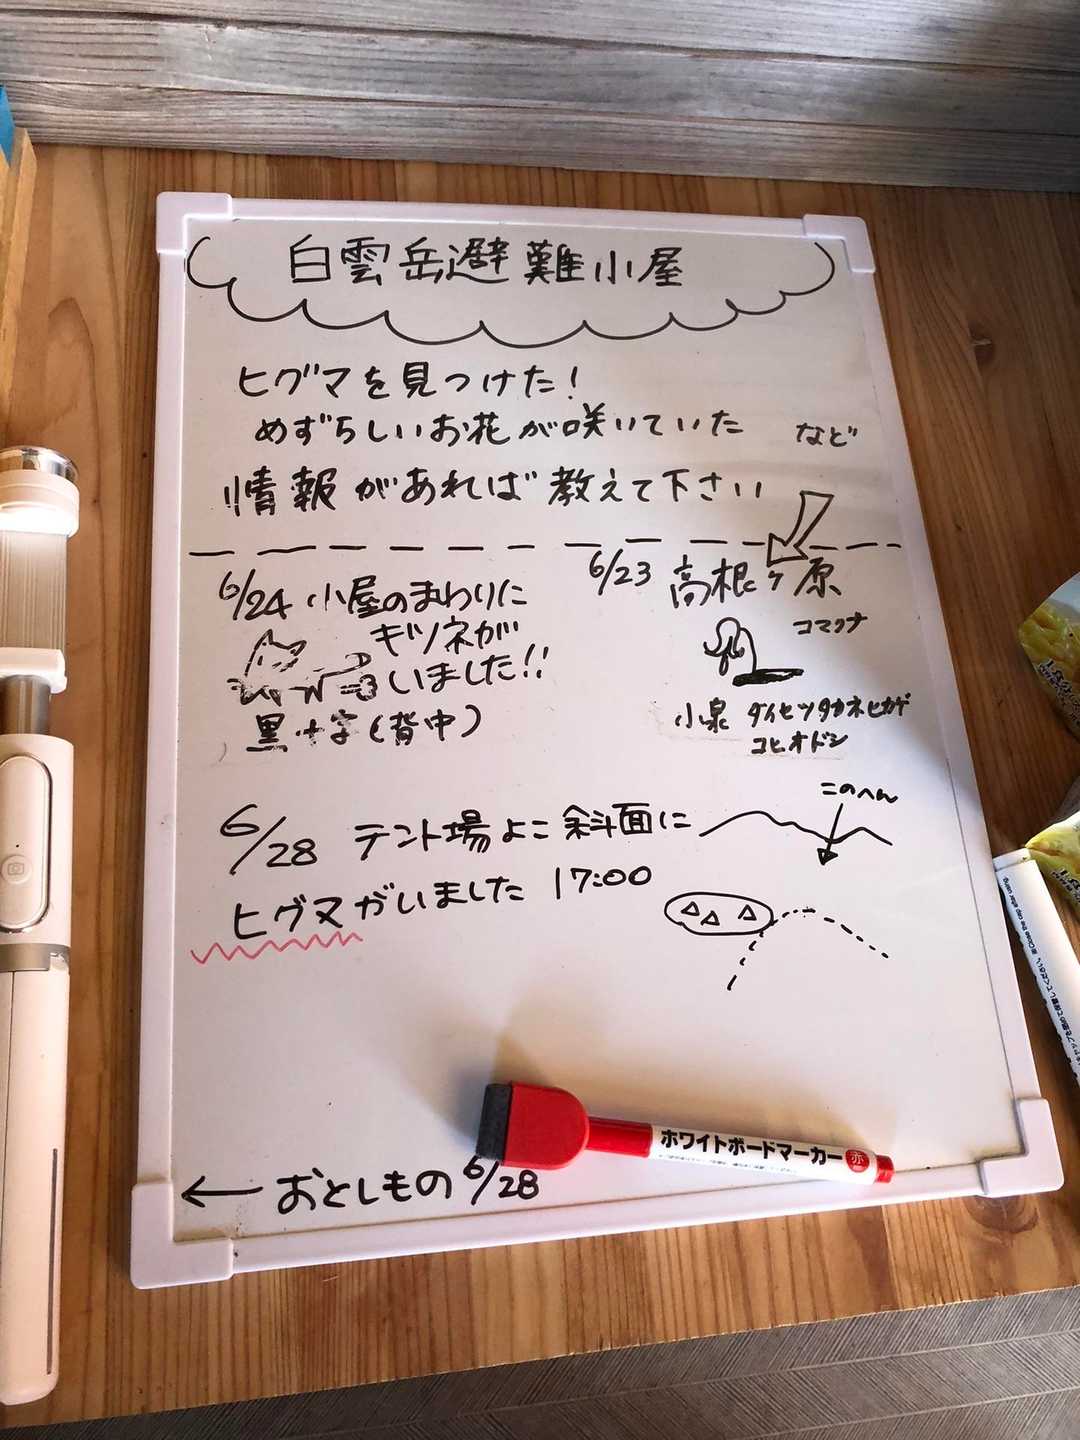 白雲岳避難小屋
ヒグマを見つけた!
めずらしいお花が咲いていた など
情報があれば教えて下さい
6/24 小屋のまわりに
キツネが
いました!!
黒十字(背中)
6/23 高根ヶ原
コマクサ
小泉 ダイセツタカネヒカゲ
コヒオドシ
6/28 テント場よこ斜面に
ヒグマがいました 17:00
このへん
ホワイトボードマーカー 赤
← おとしもの 6/28